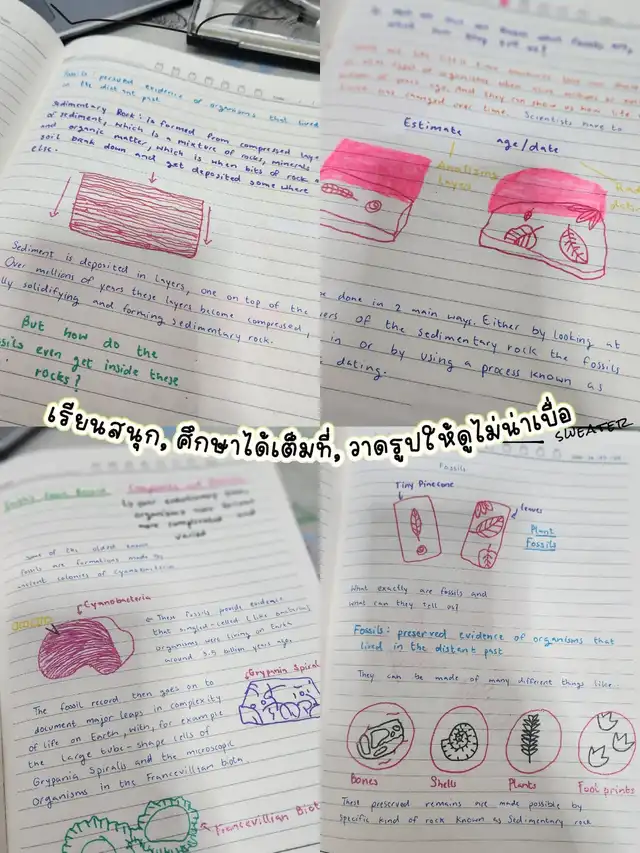 Fossils: persevud evidence of organisms that lived
in the distant past
Sedimentary Rock: is formed from compressed laye
of sediment, which is a mixture of rocks, minerals
and organic matter, which is when bits of rock
soil break down and get deposited some where
else.
Sediment is deposited in layers, one on top of the
Over millions of years these layers become compressed,
lly solidifying and forming sedimentary rock.
But how do the
ssils even get inside these
rocks?
what can they tell us?
have changed over time. Scientists have to
Estimate age/date
Analizing
Layer
done in 2 main ways. Either by looking at
ers of the sedimentary rock the fossils
in or by using a process known as
dating.
เรียนสนุก, ศึกษาได้เต็มที่, วาดรูปให้ดูไม่น่าเบื่อ
SWEATER
more complicated and
varied
some of the oldest known
fossils are formations made by
ancient colonies of Cyanobacteria
Cyanobacteria
These fossils provide evidence
that singled-celled like bacteria
organisms were living on Earth
around 3.5 billion years ago.
Grypania Spiral
The fossil record then goes on to
document major leaps in complexity
of life on Earth, with, for example
the large tube-shape cells of
Grypania Spiralis and the microscopic
Organisms in the Francevillian biota
Francevillian Biot
Fossils
Tiny Pinecone
leaves
Plant
Fossils
What exactly are fossils and
what can they tell us?
Fossils: preserved evidence of organisms that
lived in the distant past
They can be made of many different things like..
Bones
Shells
Plants
Foot prints
These preserved remains are made possible by
specific kind of rock known as Sedimentary rock